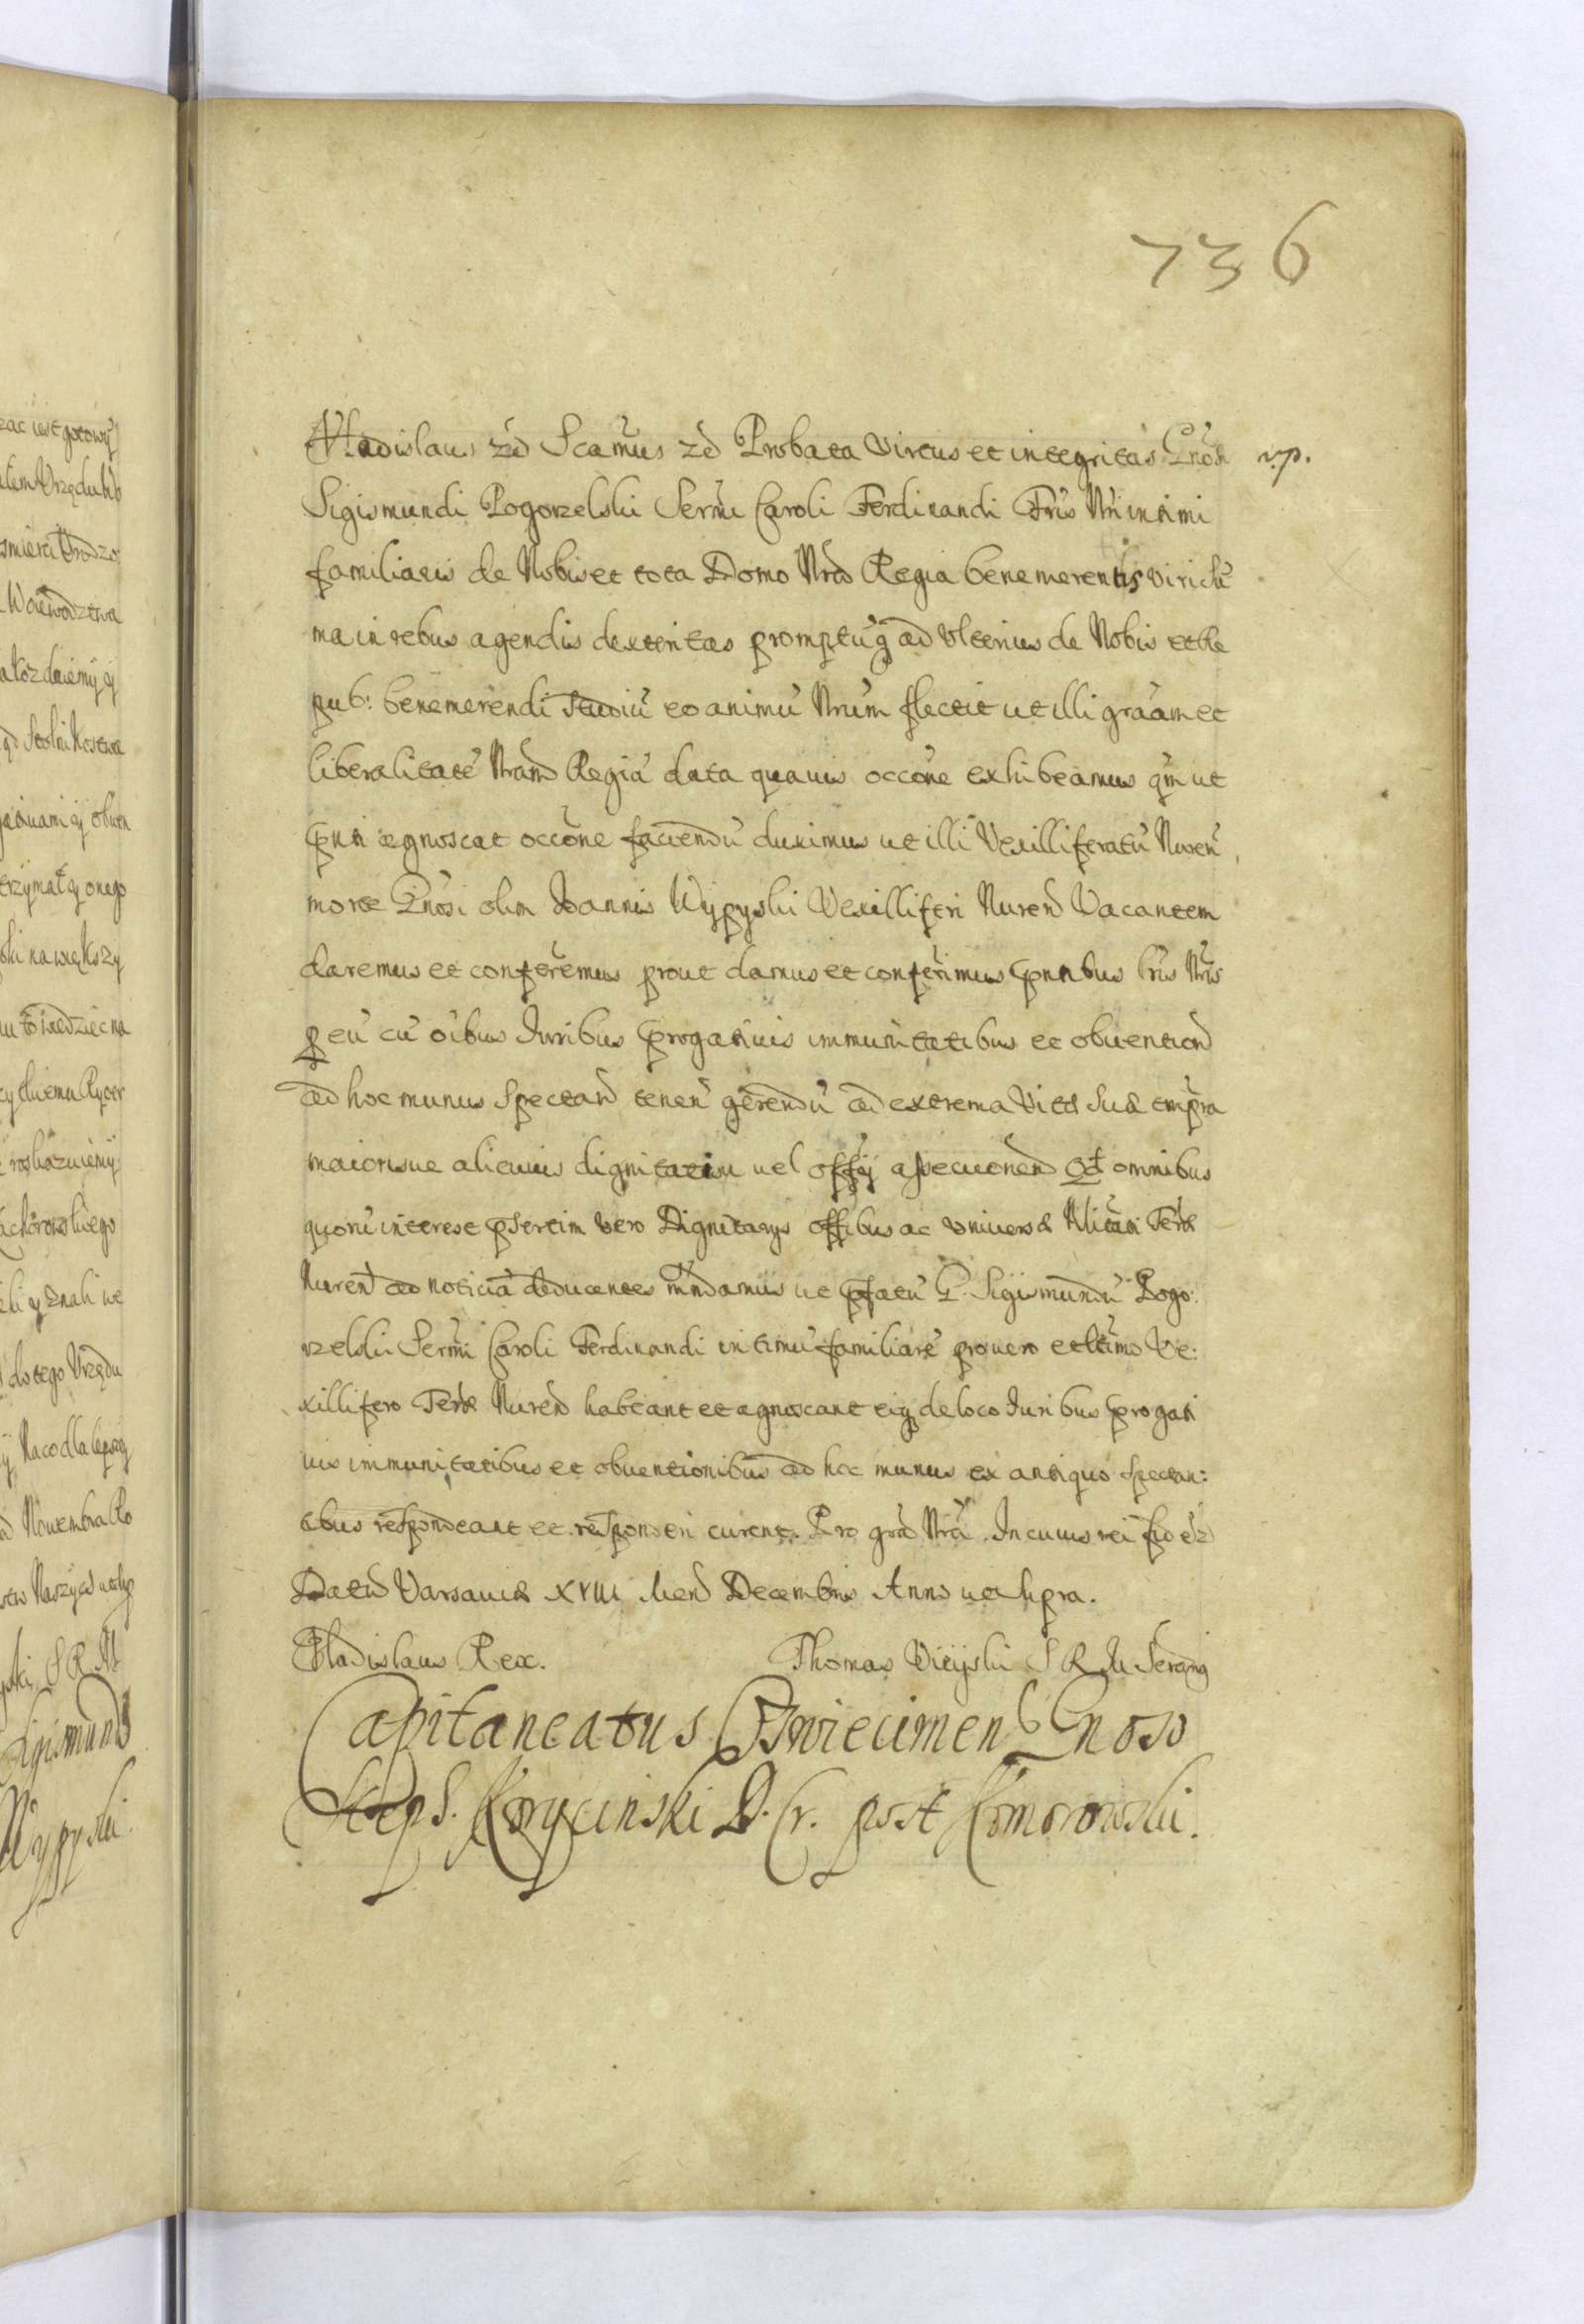 736
Vladislaus zd Scamus zd Probata Virtus et integritas Gnosi vp.
Sigismundi Pogorzelski Sermi Caroli Ferdinandi Fris Nri intimi
familiaris de Nobis et tota Domo Nra Regia benemerentis viri su
ma in rebus agendis dexteritas promptuq ad Ulterius de Nobis et Re
pub: benemerendi studiu eo animu Nrum flectit ut illi graam et
liberalitate Nram Regia data quavis occone exhibeamus qm ut
pnti agnoscat occone faciendu duximus ut illi Vexilliferatu Nuren
morte Gnosi olim Joannis Wypyski Vexilliferi Nuren Vacantem
daremus et conferemus prout damus et conferimus pntibus lris Nris
p eu cu oibus Juribus progativis immunitatibus et obvention
ad hoc munus spectan tenen gerendu ad extrema Vitae suae tempra
maiorisve alicuius dignitatis vel offy assecutionem Qd omnibus
quoru interest psertim vero Dignitarys offibus ac universae Nlitati Terrae
Nuren ad noticia deducentes mndamus ut pfatu G. Sigismundu Pogo:
rzelski Sermi Caroli Ferdinandi intimu familiare pro vero et ltimo Ve:
xillifero Terrae Nuren habeant et agnoscant eiq de loco Juribus progati
vis immunitatibus et obventionibus ad hoc munus ex antiquo spectan:
tibus respondeant et responderi curent. Pro gra Nra. In cuius rei fidez
Datu Varsaviae XVIII Men Decembris Anno ut supra.
Vladislaus Rex. Thomas Uieyski S R M Secr
Capitaneatus Oswiecimen Gnoso
Steps. Korycinski D. Cr. post Komorowski.